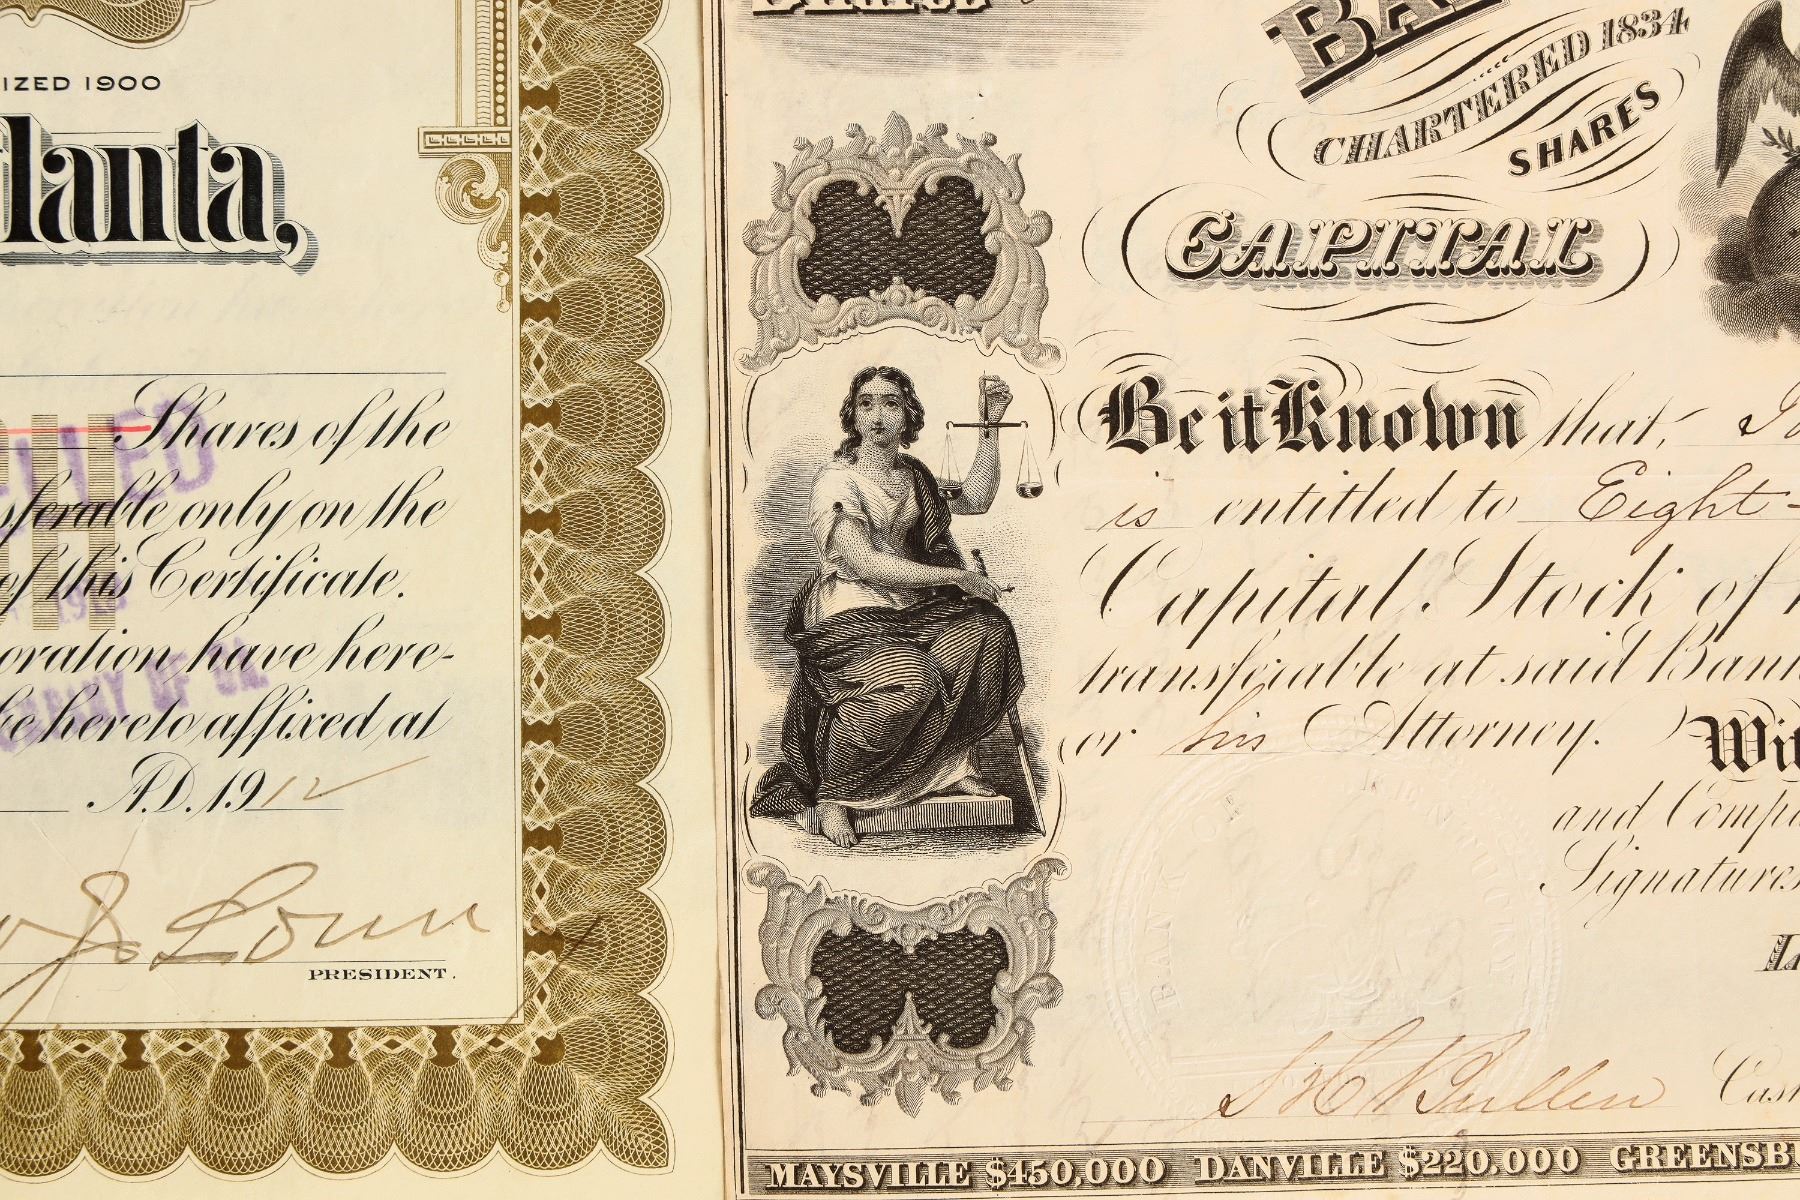 IZED 1900
lanta,
Shares of the
sferable only on the
of this Certificate.
oration have here-
be hereto affixed at
A.D. 1912
PRESIDENT.
CHARTERED 1834
SHARES
CAPITAL
Be it Known that,
is entitled to Eight-
Capital Stock of
transferable at said Bank
or his Attorney.
Wit
and Compa
Signatures
BANK OF KENTUCKY
Cash
MAYSVILLE $450,000 DANVILLE $220,000 GREENSBU